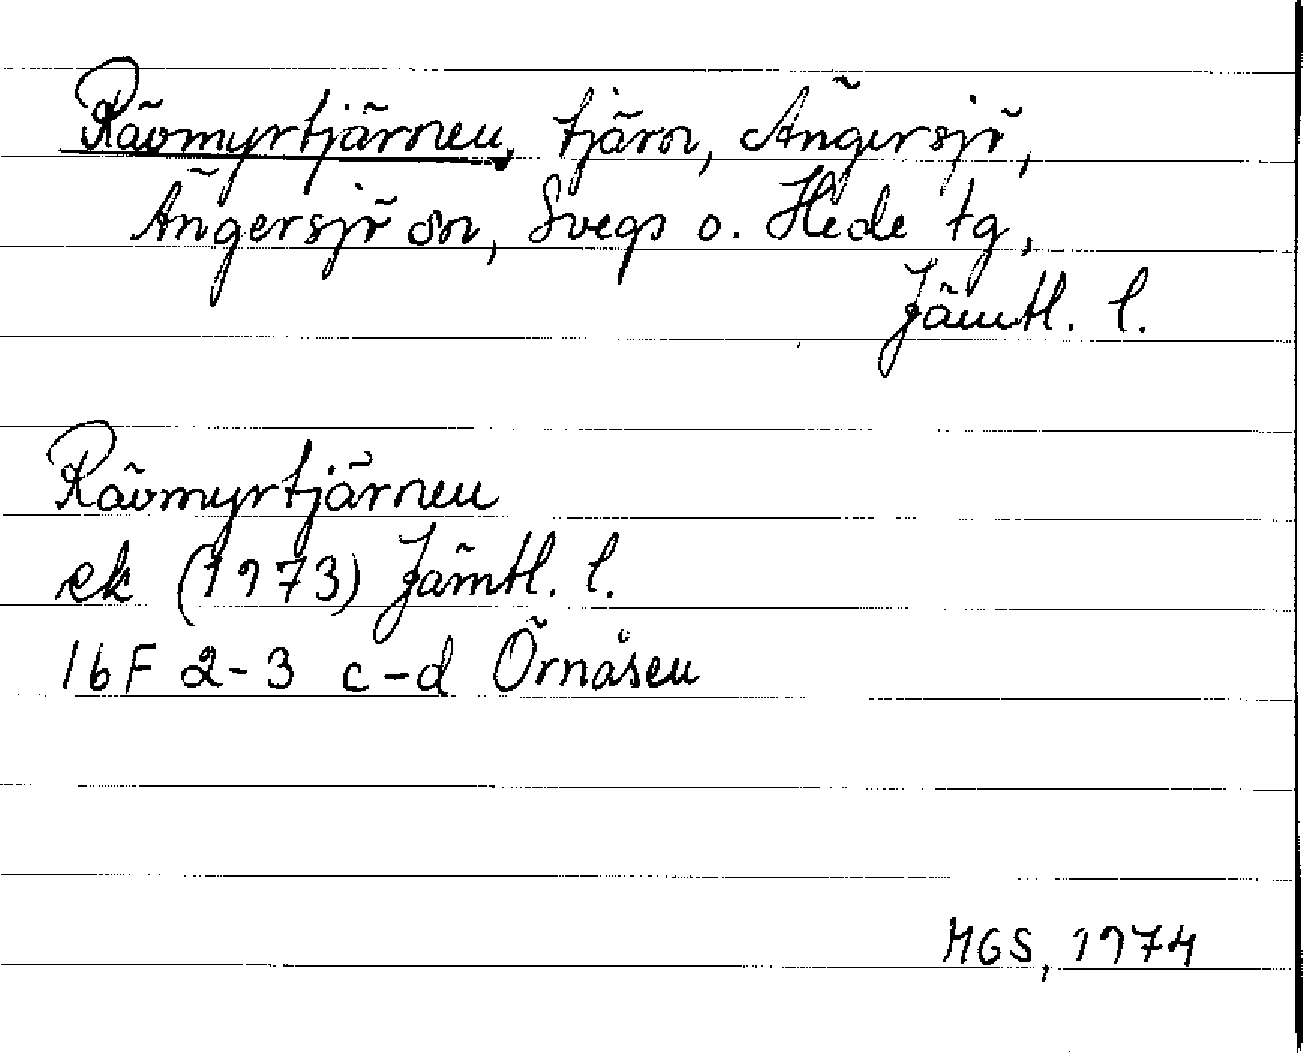 Rävmyrtjärnen, tjärn, Ängersjö,
Ängersjö sn, Svegs o. Hede tg,
Jämtl. l.
Rävmyrtjärnen
ek (1973) Jämtl. l.
16F 2-3 c-d Örnåsen
MGS, 1974